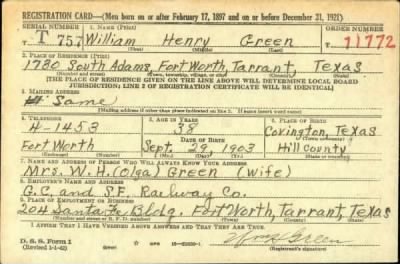 REGISTRATION CARD—(Men born on or after February 17, 1897 and on or before December 31, 1921)
SERIAL NUMBER
1. NAME (Print)
ORDER NUMBER
T 757
William Henry Green
11772
(First) (Middle) (Last)
2. PLACE OF RESIDENCE (Print)
1720 South Adams, Fort Worth, Tarrant, Texas
(Number and street) (Town, township, village, or city) (County) (State)
[THE PLACE OF RESIDENCE GIVEN ON THE LINE ABOVE WILL DETERMINE LOCAL BOARD
JURISDICTION; LINE 2 OF REGISTRATION CERTIFICATE WILL BE IDENTICAL]
3. MAILING ADDRESS
Same
[Mailing address if other than place indicated on line 2. If same insert word same]
4. TELEPHONE
5. AGE IN YEARS
6. PLACE OF BIRTH
4-1453
38
Covington, Texas
DATE OF BIRTH
(Town or county)
Fort Worth
Sept. 29, 1903
Hill County
(Exchange) (Number)
(Mo.) (Day) (Yr.)
(State or country)
7. NAME AND ADDRESS OF PERSON WHO WILL ALWAYS KNOW YOUR ADDRESS
Mrs. W. H. (Olga) Green (Wife)
8. EMPLOYER'S NAME AND ADDRESS
G. C. and S. F. Railway Co.
9. PLACE OF EMPLOYMENT OR BUSINESS
204 Santa Fe Bldg. Fort Worth, Tarrant, Texas
(Number and street or R. F. D. number) (Town) (County) (State)
I AFFIRM THAT I HAVE VERIFIED ABOVE ANSWERS AND THAT THEY ARE TRUE.
D. S. S. Form 1
(Revised 1-1-42)
(over)
GPO
Wm H Green
(Registrant's signature)